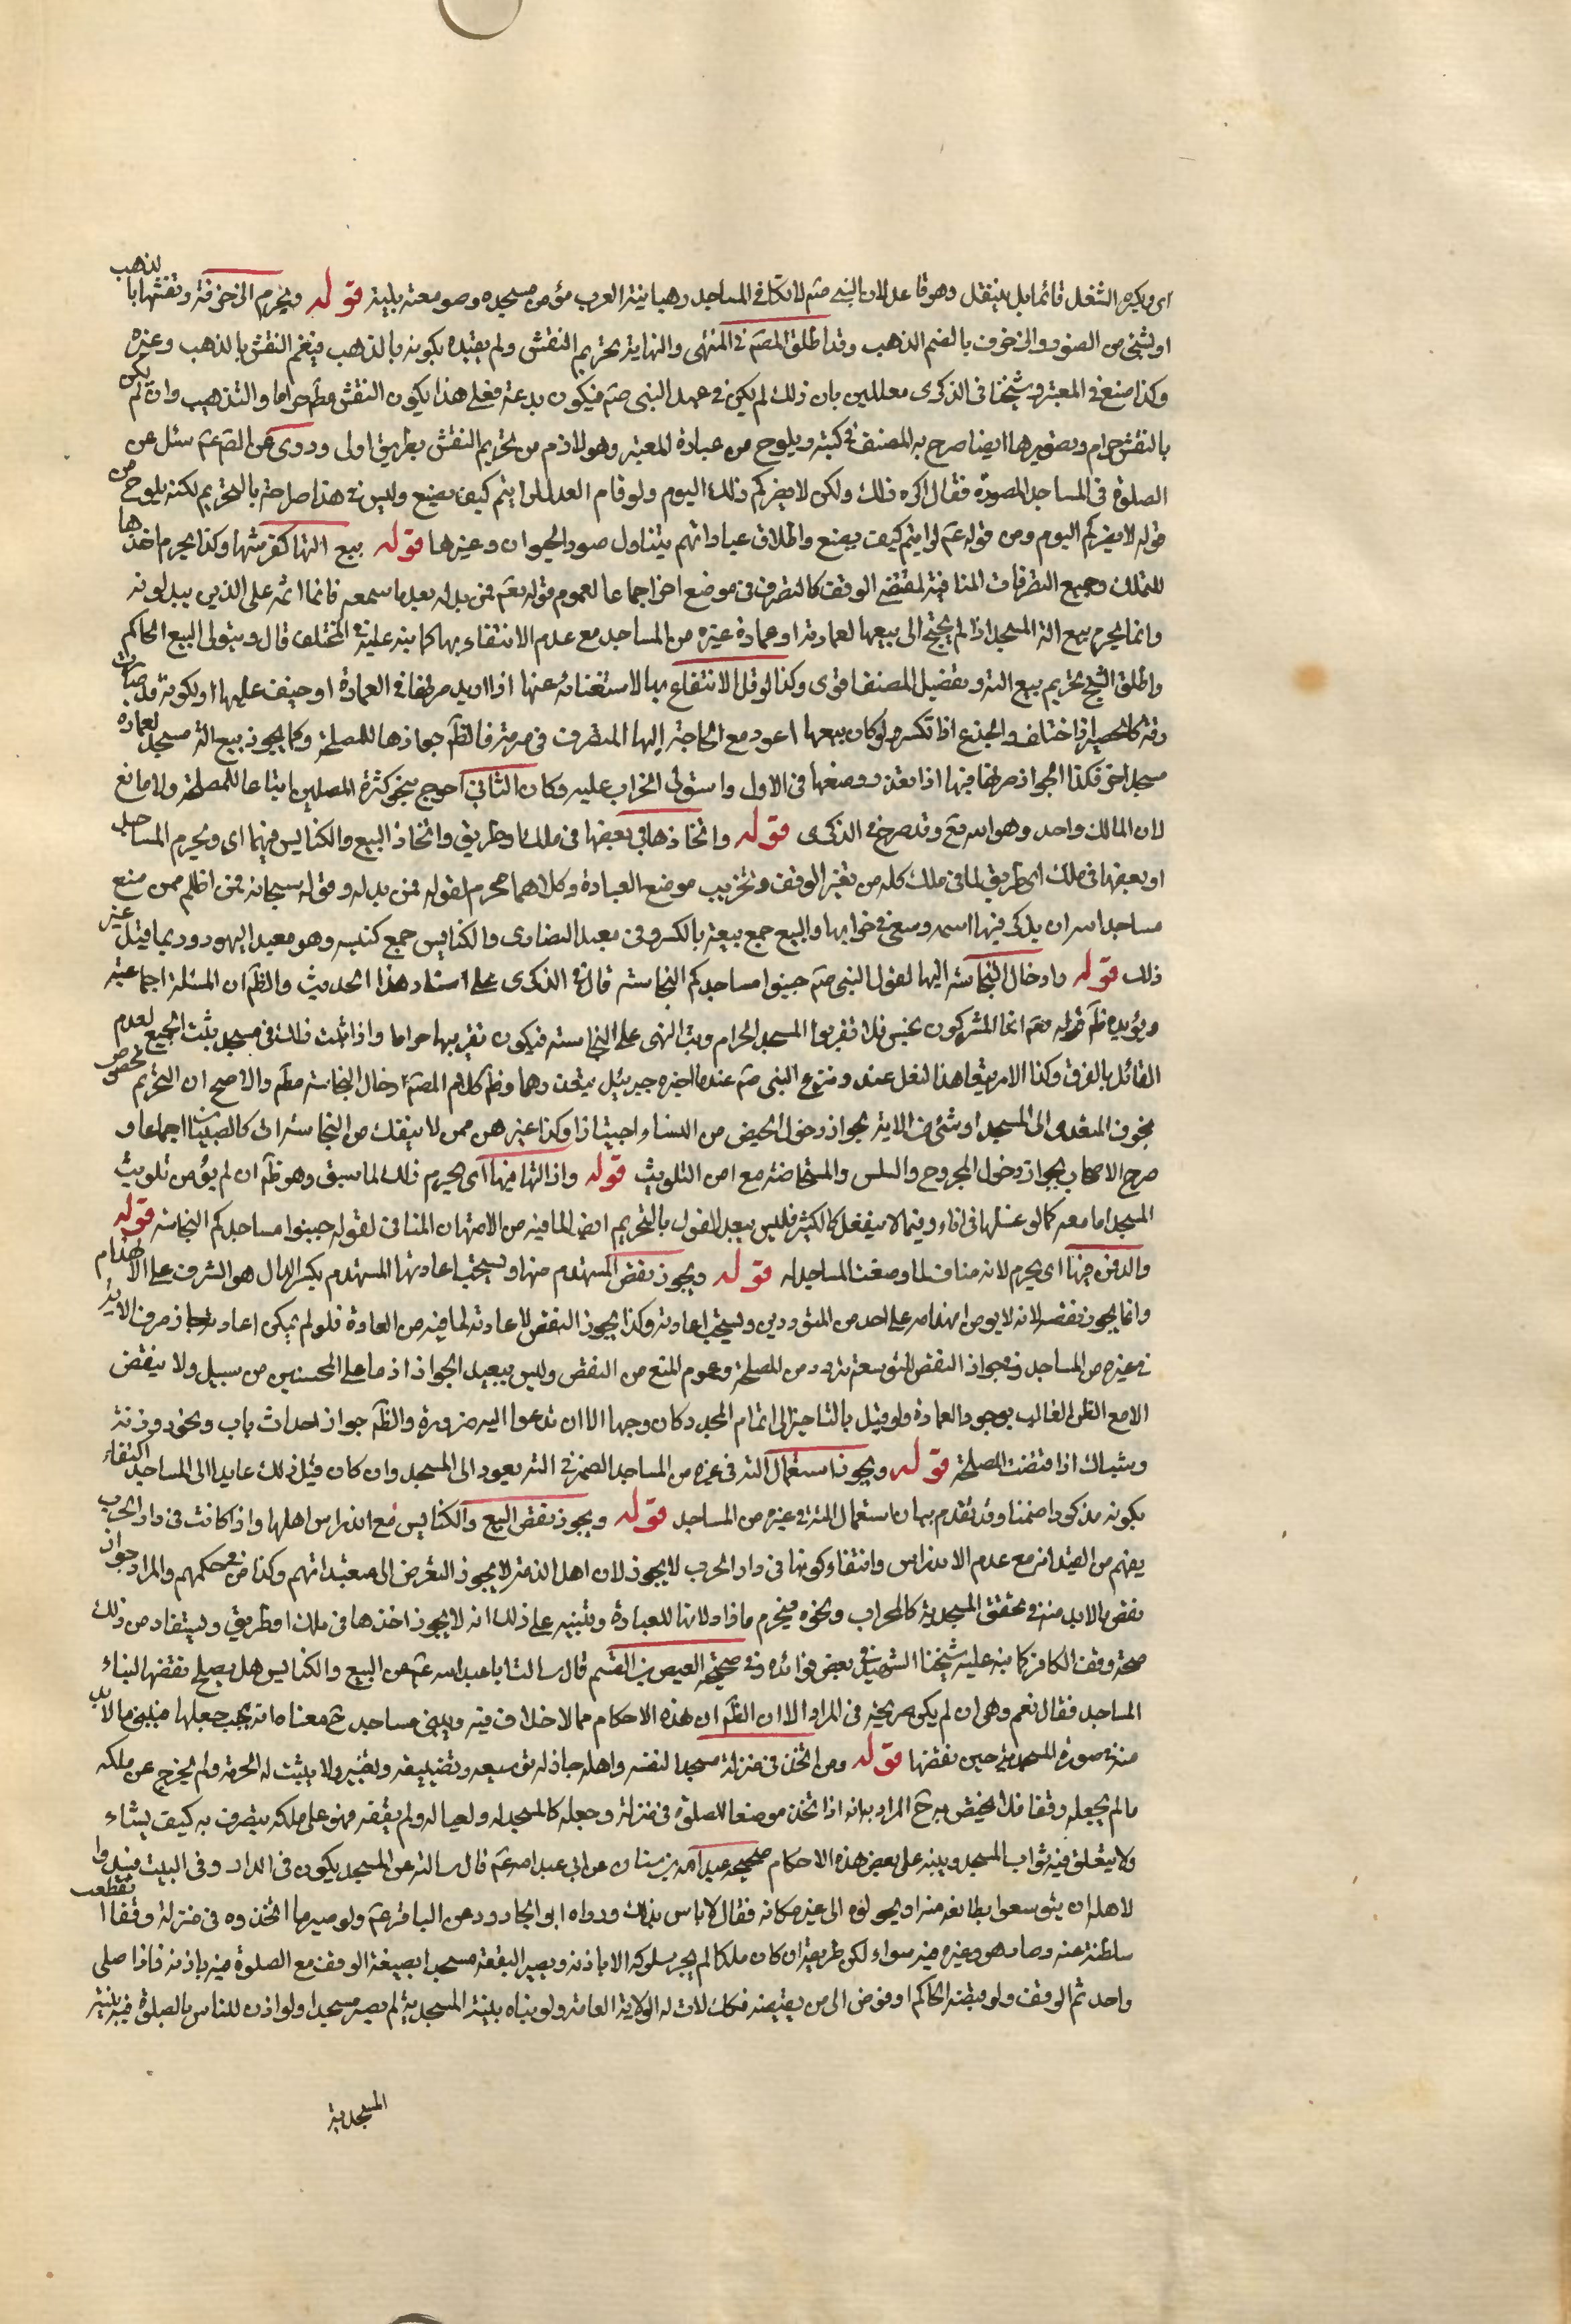 اى ويكره التنعل قائما بل يتنعل وهو قاعد لان النبى صم الاتكاء فى المساجد رهبانية العرب مؤمن مسجده وصومعته بيته قوله ويحرم الزخرفة ونقشها بالذهب
او بشئ من الصور والزخرف بالضم الذهب وقد اطلق المصنف فى المنتهى والنهاية تحريم النقش ولم يقيده بكونه بالذهب فيعم النقش بالذهب وغيره
وكذا صنع فى المعتبر وشيخنا فى الذكرى معللين بان ذلك لم يكن فى عهد النبى صم فيكون بدعة فعلى هذا يكون النقش مط حراما والتذهيب وان لم يكن
بالنقش حرام وتصويرها ايضا صرح به المصنف فى كتبه ويلوح من عبارة المعتبر وهو لازم من تحريم النقش بطريق اولى وروى عن الصم عم سئل عن
الصلوة فى المساجد المصورة فقال اكره ذلك ولكن لا يضركم ذلك اليوم ولو قام العدل لرايتم كيف يصنع وليس فى هذا صراحة بالتحريم لكنه يلوح من
قوله لا يضركم اليوم ومن قوله عم لرايتم كيف يصنع واطلاق عباراتهم يتناول صور الحيوان وغيرها قوله بيع التها كفرشها وكذا يحرم اخذها
للتملك وجميع التصرفات المنافية لمقتضى الوقف كالتصرف فى موضع اخر اجماعا لعموم قوله تعم فمن بدله بعد ما سمعه فانما اثمه على الذين يبدلونه
وانما يحرم بيع الة المسجد اذا لم يحتج الى بيعها لعمارته او عمارة غيره من المساجد مع عدم الانتفاع بها كما نبه عليه فى المختلف قال ويتولى البيع الحاكم
واطلق الشيخ تحريم بيع الته وتفصيل المصنف اقوى وكذا لو قل الانتفاع بها لاستغنائه عنها اذا اريد صرفها فى العمارة او خيف عليها او لكونه قد صارت
رثة كالحصير اذا خلق والجذع اذا تكسر ولو كان بيعها اعود مع الحاجة اليها المتصرف فى مرمته فالظم جوازها للمصلحة وكما يجوز بيع الة مسجد لعمارة
مسجد اخر فكذا الجواز صرفها فيها اذا تعذر وضعها فى الاول واستولى الخراب عليه وكان الثانى احوج بنحو كثرة المصلين اتباعا للمصلحة ولا مانع
لان المالك واحد وهو الله تع وقد صرح فى الذكرى قوله واتخاذها او بعضها فى ملك او طريق واتخاذ البيع والكنايس فيهما اى ويحرم المساجد
او بعضها فى ملك اى طريق لما فى ملك كله من تغير الوقف وتخريب موضع العبادة وكلاهما محرم لقوله فمن بدله وقوله سبحانه فمن اظلم ممن منع
مساجد الله ان يذكر فيها اسمه وسعى فى خرابها والبيع جمع بيعة بالكسر وفى معبد النصارى والكنايس جمع كنيسه وهو معبد اليهود وربما قيل غير
ذلك قوله وادخال النجاسة اليها لقول النبى صم جنبوا مساجدكم النجاسة قال فى الذكرى على استناد هذا الحديث والظم ان المسئلة اجماعية
ويؤيده ظم قوله تعم انما المشركون نجس فلا تقربوا المسجد الحرام ورتب النهى على النجاسة فيكون تقريبها حراما واذا ثبت ذلك فى مسجد يثبت الجميع لعدم
القائل بالفرق وكذا الامر بتعاهد النعل عند ونزع النبى صم عنده اخبره جبرئيل بقذرهما وظم كلام المصم ادخال النجاسة مطم والاصح ان التحريم مخصوص
بخوف التعدى الى المسجد او شئ من الاته لجواز دخول الحيض من النساء اجتيازا وكذا غيرهن ممن لا ينفك من النجاسة اى كالصبيان اجماعا و
صرح الاصحاب بجواز دخول المجروح والسلس والمستحاضة مع امن التلويث قوله وازالتها فيها اى يحرم ذلك لما سبق وهو ظم ان لم يؤمن تلويث
المسجد اما معه كما لو غسلها فى اناء وفيما لا ينفعل كالكثير فليس ببعد القول بالتحريم ايضا لما فيه من الامتهان المنافى لقوله جنبوا مساجدكم النجاسة قوله
والدفن فيها اى يحرم لانه مناف لما وضعت المساجد له قوله ويجوز نقض المستهدم منها ويستحب اعادتها المستهدم بكسر الدال هو الشرف على الانهدام
وانما يجوز نقضه لانه لا يؤمن انهدامه على احد من المترددين ويستحب اعادته وكذا يجوز النقض لاعادته لما فيه من العمارة فلو لم يمكن اعادته جاز صرف الاته
فى غيره من المساجد وفى جواز النقض للتوسعة تردد من المصلحة وعموم المنع من النقض وليس ببعيد الجواز اذ ما على المحسنين من سبيل ولا ينقض
الا مع الظن الغالب بوجود العمارة ولو قيل بالتاخير الى اتمام المجدد كان وجها الا ان تدعوا اليه ضرورة والظم جواز احداث باب ونحو روزنة
وشباك اذا اقتضت المصلحة قوله ويجوز استعمال الته فى غيره من المساجد الضمير فى الته يعود الى المسجد وان كان قبل ذلك عايدا الى المساجد اكتفاء
بكونه مذكورا ضمنا وقد تقدم بيان استعمال الته فى غيره من المساجد قوله ويجوز نقض البيع والكنايس مع اندراس اهلها واذا كانت فى دار الحرب
يفهم من القيد انه مع عدم الاندراس وانتفاء كونها فى دار الحرب لا يجوز لان اهل الذمة لا يجوز التعرض الى متعبداتهم وكذا من فى حكمهم والمراد جواز
نقض ما لا بد منه فى تحقق المسجدية كالمحراب ونحوه فيحرم ما زاد لانها للعبادة ويتنبه على ذلك انه لا يجوز اخذها فى ملك او طريق ويستفاد من ذلك
صحة وقف الكافر كما نبه عليه شيخنا الشهيد فى بعض فوائده وفى صحيحة العيص بن القسم قال سالت ابا عبد الله عم عن البيع والكنايس هل يصلح نقضها لبناء
المساجد فقال نعم وهى ان لم يكن صريحة فى المراد الا ان الظم ان هذه الاحكام مما لا خلاف فيه ويبنى مساجد ح معناه انه يجب جعلها فيبنى ما لا بد
منه فى صورة المسجدية حين نقضها قوله ومن اتخذ فى منزله مسجدا لنفسه واهله جاز له توسيعه وتضييقه وتغييره ولا يثبت له الحرمة ولم يخرج عن ملكه
ما لم يجعله وقفا فلا يختص به ح المراد به انه اذا اتخذ موضعا للصلوة فى منزله وجعله كالمسجد له ولعياله ولم يقفه فهو على ملكه يتصرف به كيف يشاء
ولا يتعلق فيه ثواب المسجد وينبه على بعض هذه الاحكام صحيحة عبد الله بن سنان عن ابى عبد الله عم قال سالته عن المسجد يكون فى الدار وفى البيت فيبدوا
لاهله ان يتوسعوا بطائفة منه او يحولوه الى غير مكانه فقال لا باس بذلك ورواه ابو الجارود عن الباقر عم ولو صيرها اتخذوه فى منزله وقفا انقطعت
سلطنته عنه وصار هو وغيره فيه سواء لكن طريقه ان كان ملكا لم يجز سلوكه الا باذنه ويصير البقعة مسجدا بصيغة الوقف مع الصلوة فيه باذنه فاذا صلى
واحد تم الوقف ولو قبضه الحاكم او فوض الى من يقبضه فكك لان له الولاية العامة ولو بناه بنية المسجدية لم يصر مسجدا ولو اذن للناس بالصلوة فيه بنية
المسجدية